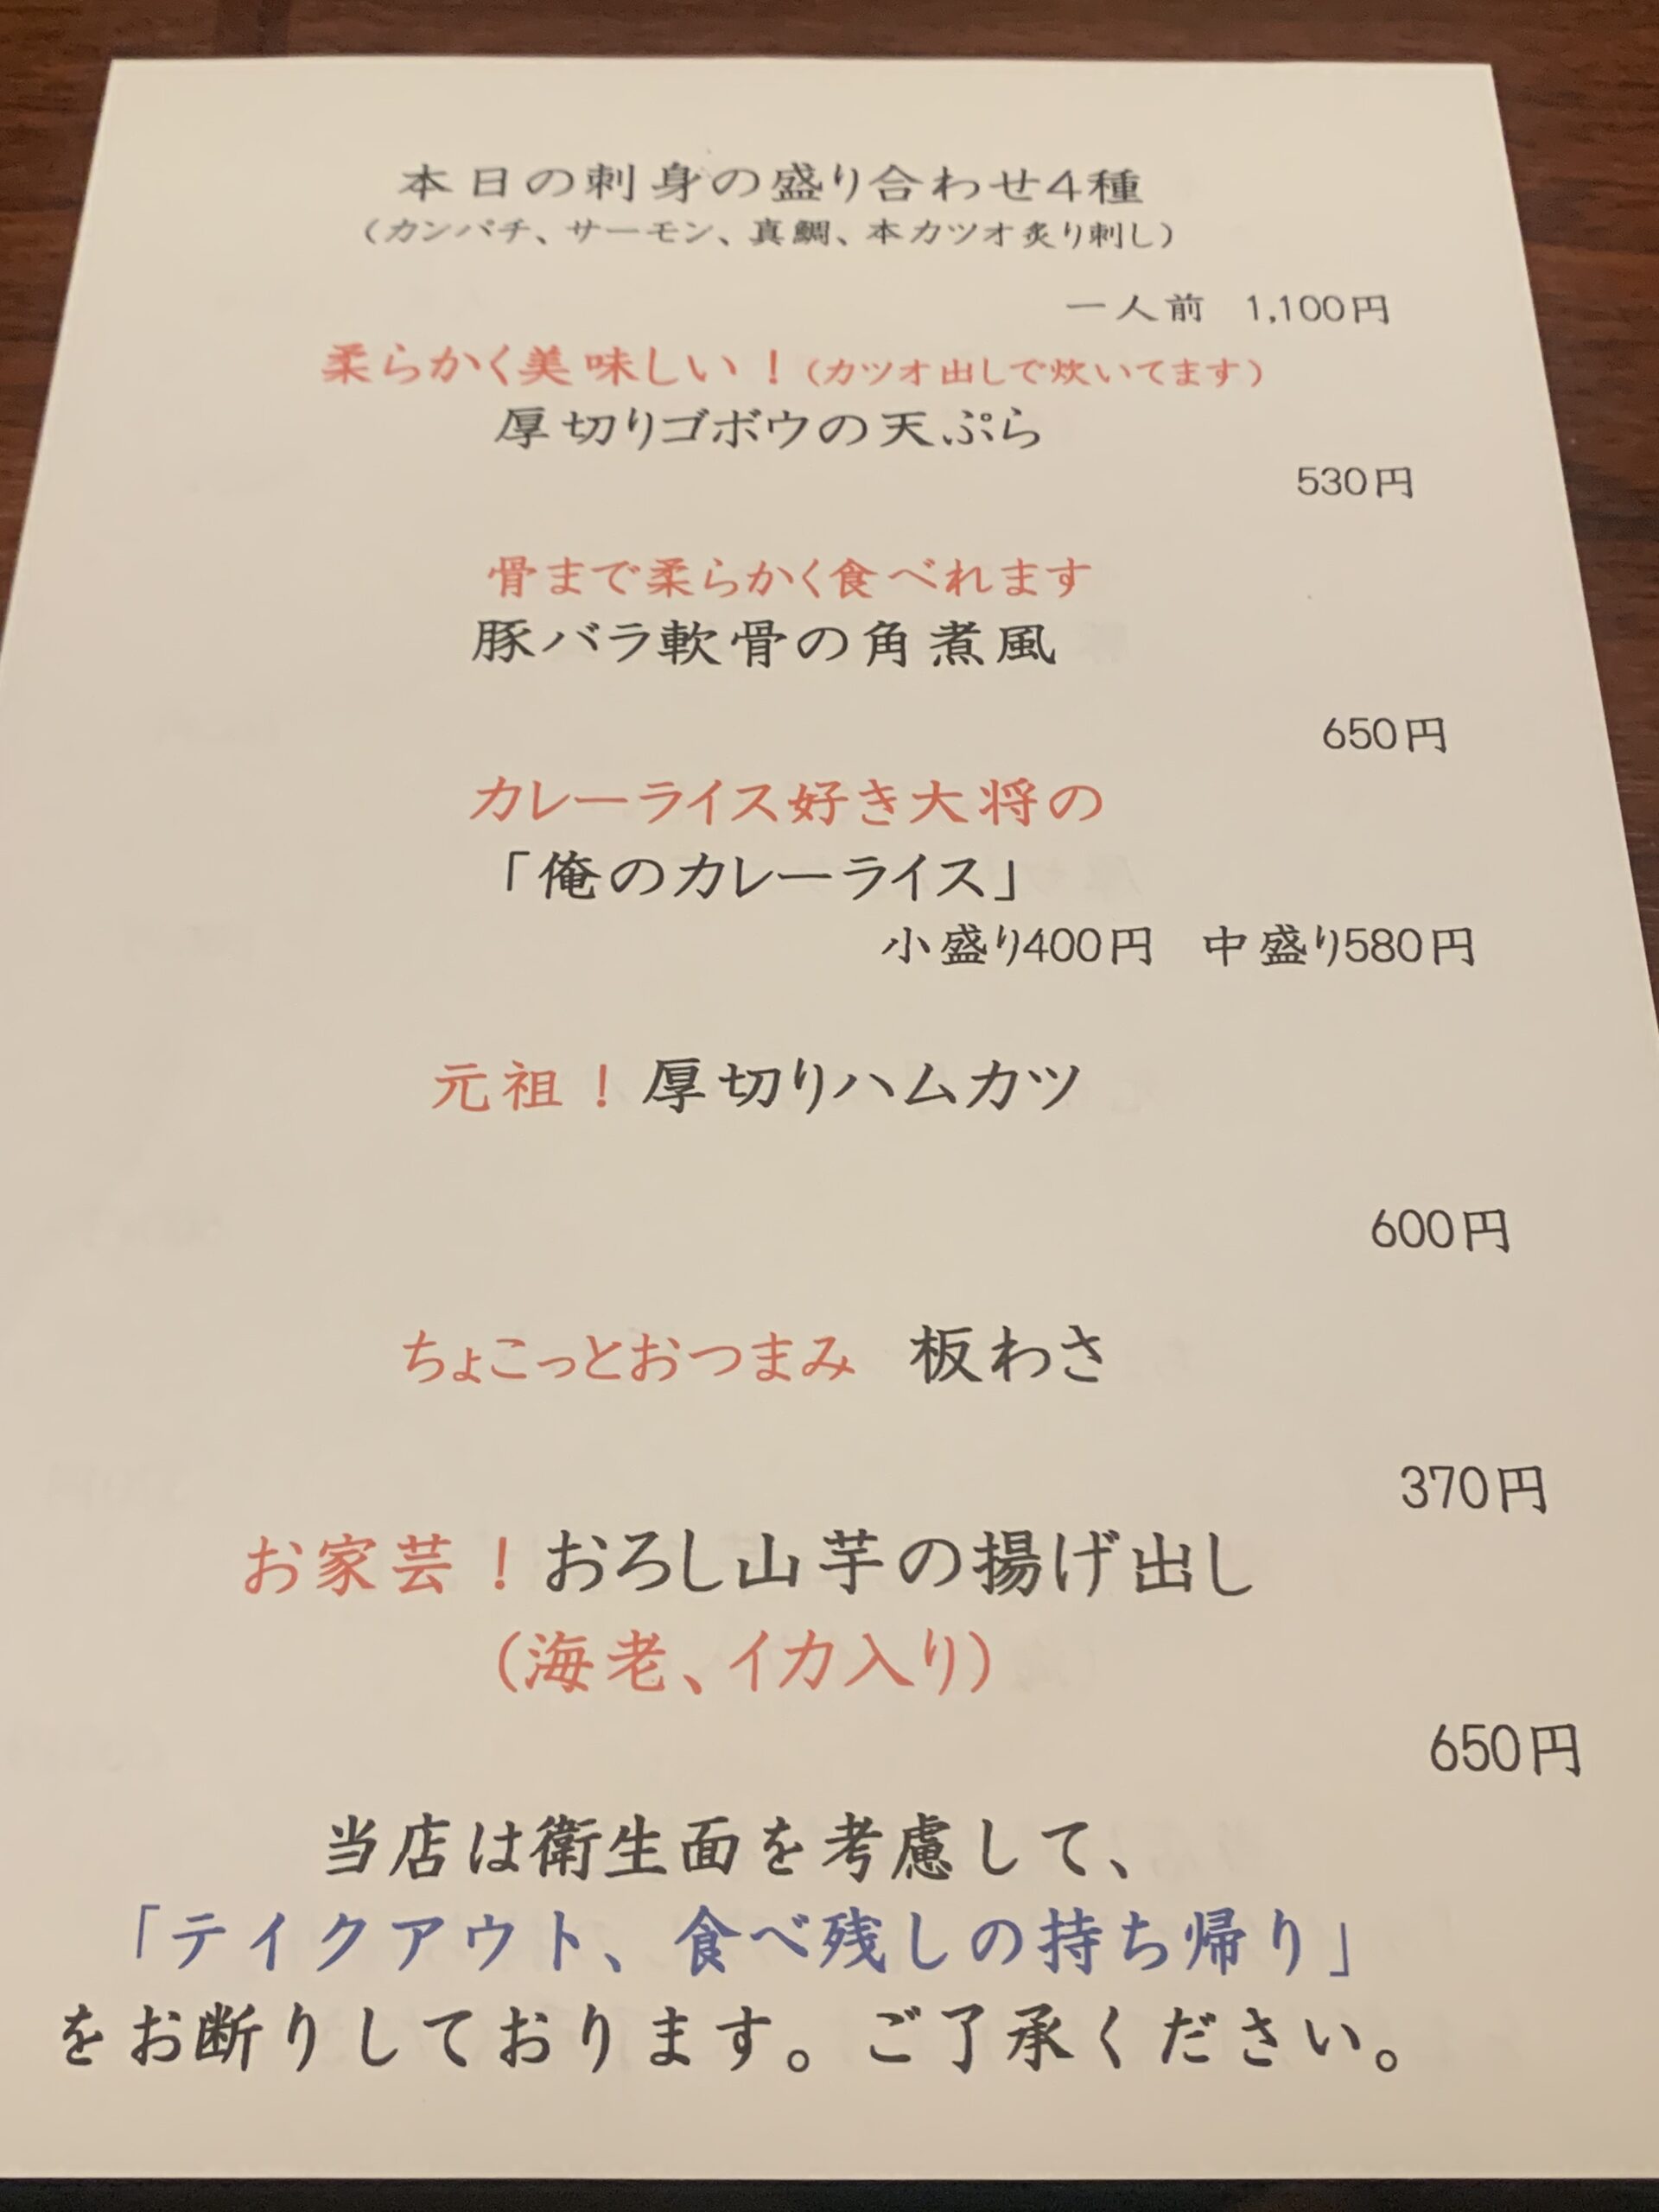 本日の刺身の盛り合わせ4種
（カンパチ、サーモン、真鯛、本カツオ炙り刺し）
一人前 1,100円
柔らかく美味しい！（カツオ出しで炊いてます）
厚切りゴボウの天ぷら
530円
骨まで柔らかく食べれます
豚バラ軟骨の角煮風
650円
カレーライス好き大将の
「俺のカレーライス」
小盛り400円 中盛り580円
元祖！厚切りハムカツ
600円
ちょこっとおつまみ 板わさ
370円
お家芸！おろし山芋の揚げ出し
（海老、イカ入り）
650円
当店は衛生面を考慮して、
「テイクアウト、食べ残しの持ち帰り」
をお断りしております。ご了承ください。